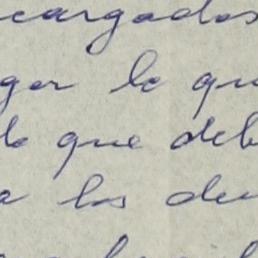 cargados
gar lo qu
lo que deb
a los deu